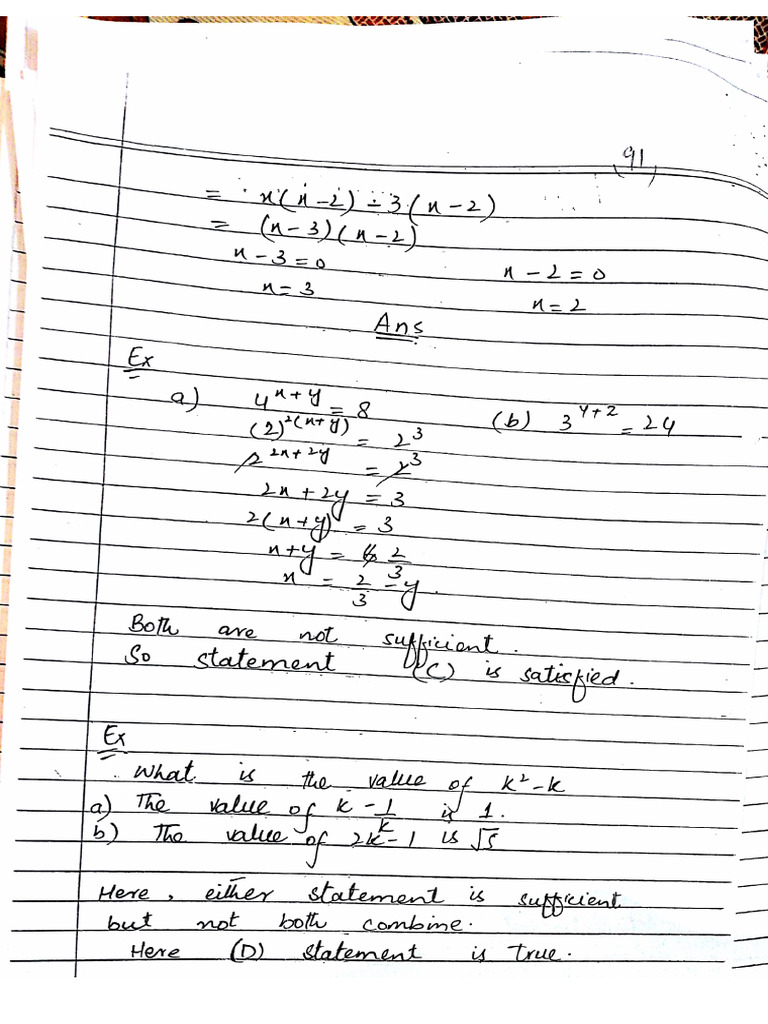 91
= x(x-2) - 3(x-2)
= (x-3)(x-2)
x-3=0 x-2=0
x=3 x=2
Ans
Ex
a) 4^x+y = 8 (b) 3^y+2 = 24
(2)^2(x+y) = 2^3
2^2x+2y = 2^3
2x+2y = 3
2(x+y) = 3
x+y = 2/3
x = 2/3 - y.
Both are not sufficient.
So statement (C) is satisfied.
Ex
What is the value of k²-k
a) The value of k - 1/k is 1.
b) The value of 2k-1 is √5
Here, either statement is sufficient
but not both combine.
Here (D) statement is True.